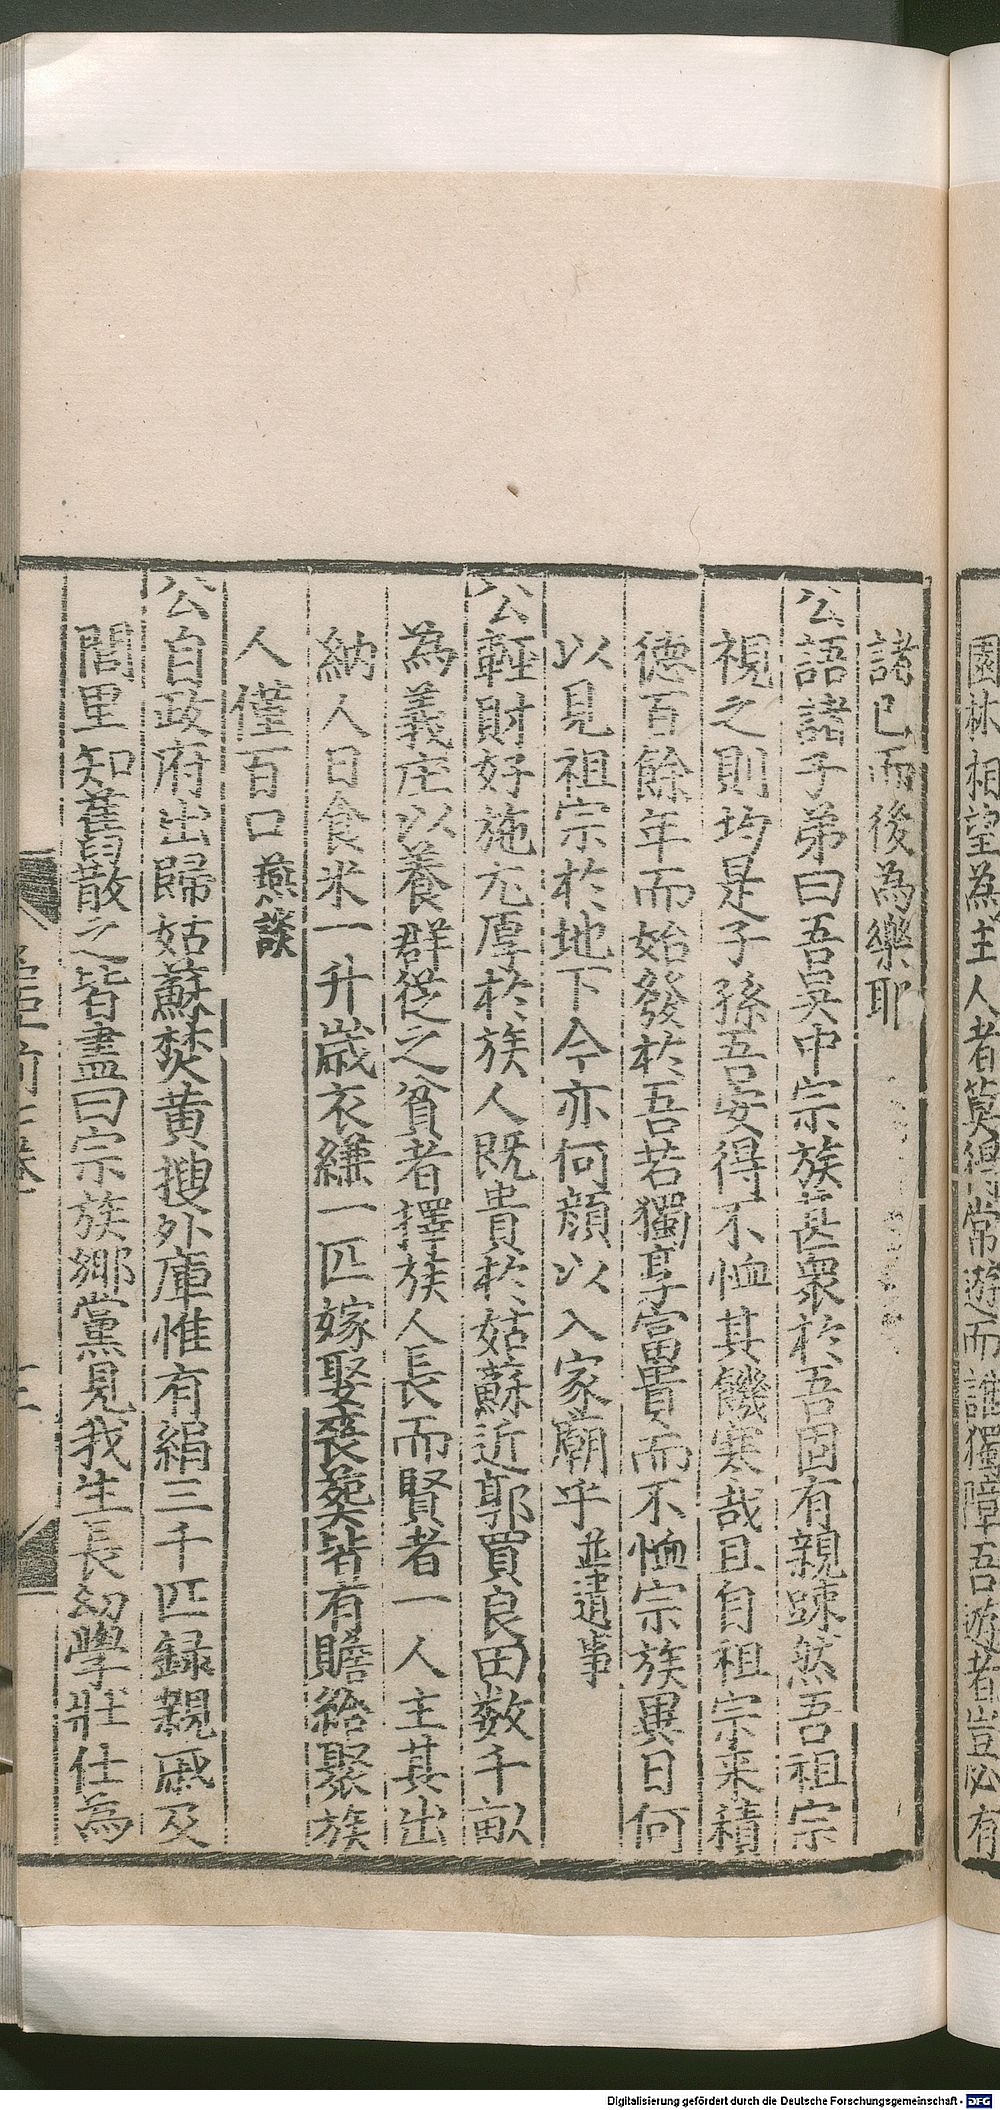 園林相望為主人者莫得常遊而誰獨障吾遊者豈必有
諸己而後為樂耶
公語諸子弟曰吾吳中宗族甚眾於吾固有親踈然吾祖宗
視之則均是子孫吾安得不恤其饑寒哉且自祖宗来積
德百餘年而始發於吾若獨享富貴而不恤宗族異日何
以見祖宗於地下今亦何顔以入家廟乎並遺事
公輕財好施尤厚於族人既貴於姑蘇近郭買良田数千畝
為義庄以養群從之貧者擇族人長而賢者一人主其出
納人日食米一升歲衣縑一匹嫁娶喪葬皆有贍給聚族
人僅百口 燕談
公自政府出歸姑蘇焚黄搜外庫惟有絹三千匹録親戚及
閭里知舊散之皆盡曰宗族鄉黨見我生長幼學壯仕為
Digitalisierung gefördert durch die Deutsche Forschungsgemeinschaft - DFG